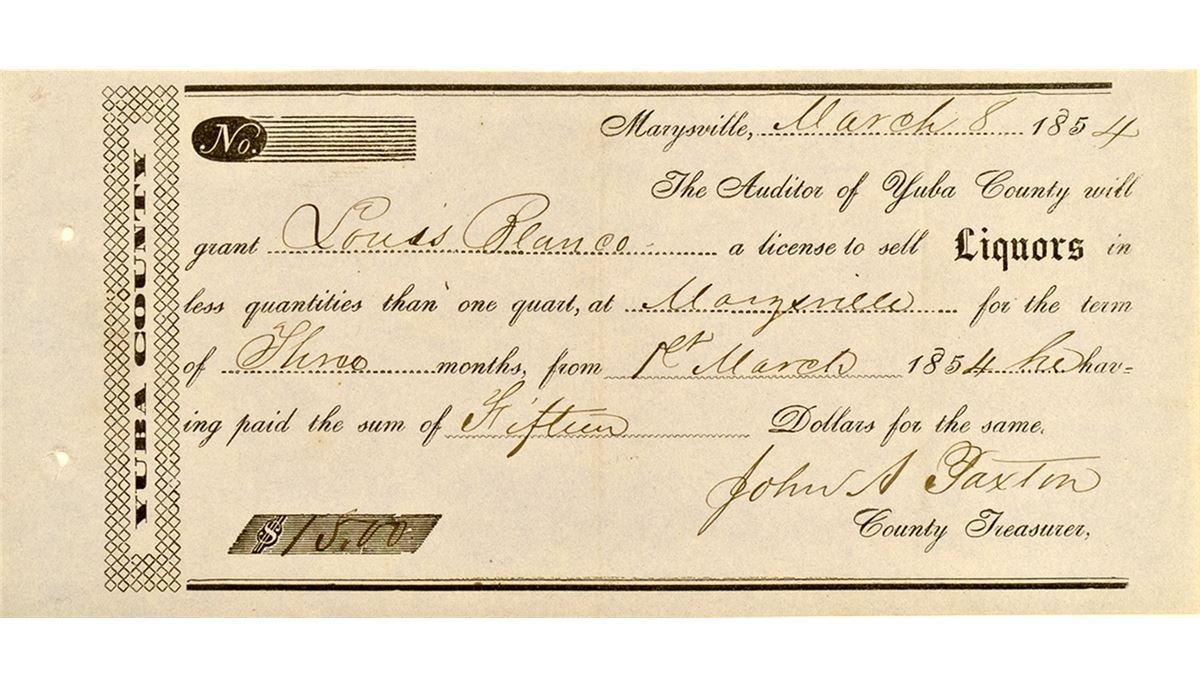 YUBA COUNTY
No.
Marysville, March 8 1854
The Auditor of Yuba County will
grant Louis Blanco a license to sell Liquors in
less quantities than one quart, at Marysville for the term
of Three months, from 1st March 1854 he hav-
ing paid the sum of Fifteen Dollars for the same.
John A Paxton
$15.00
County Treasurer,